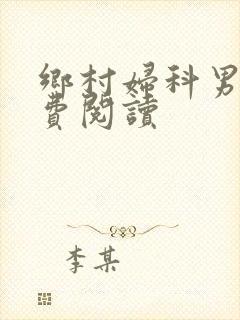 鄉村婦科男
費閱讀
李某